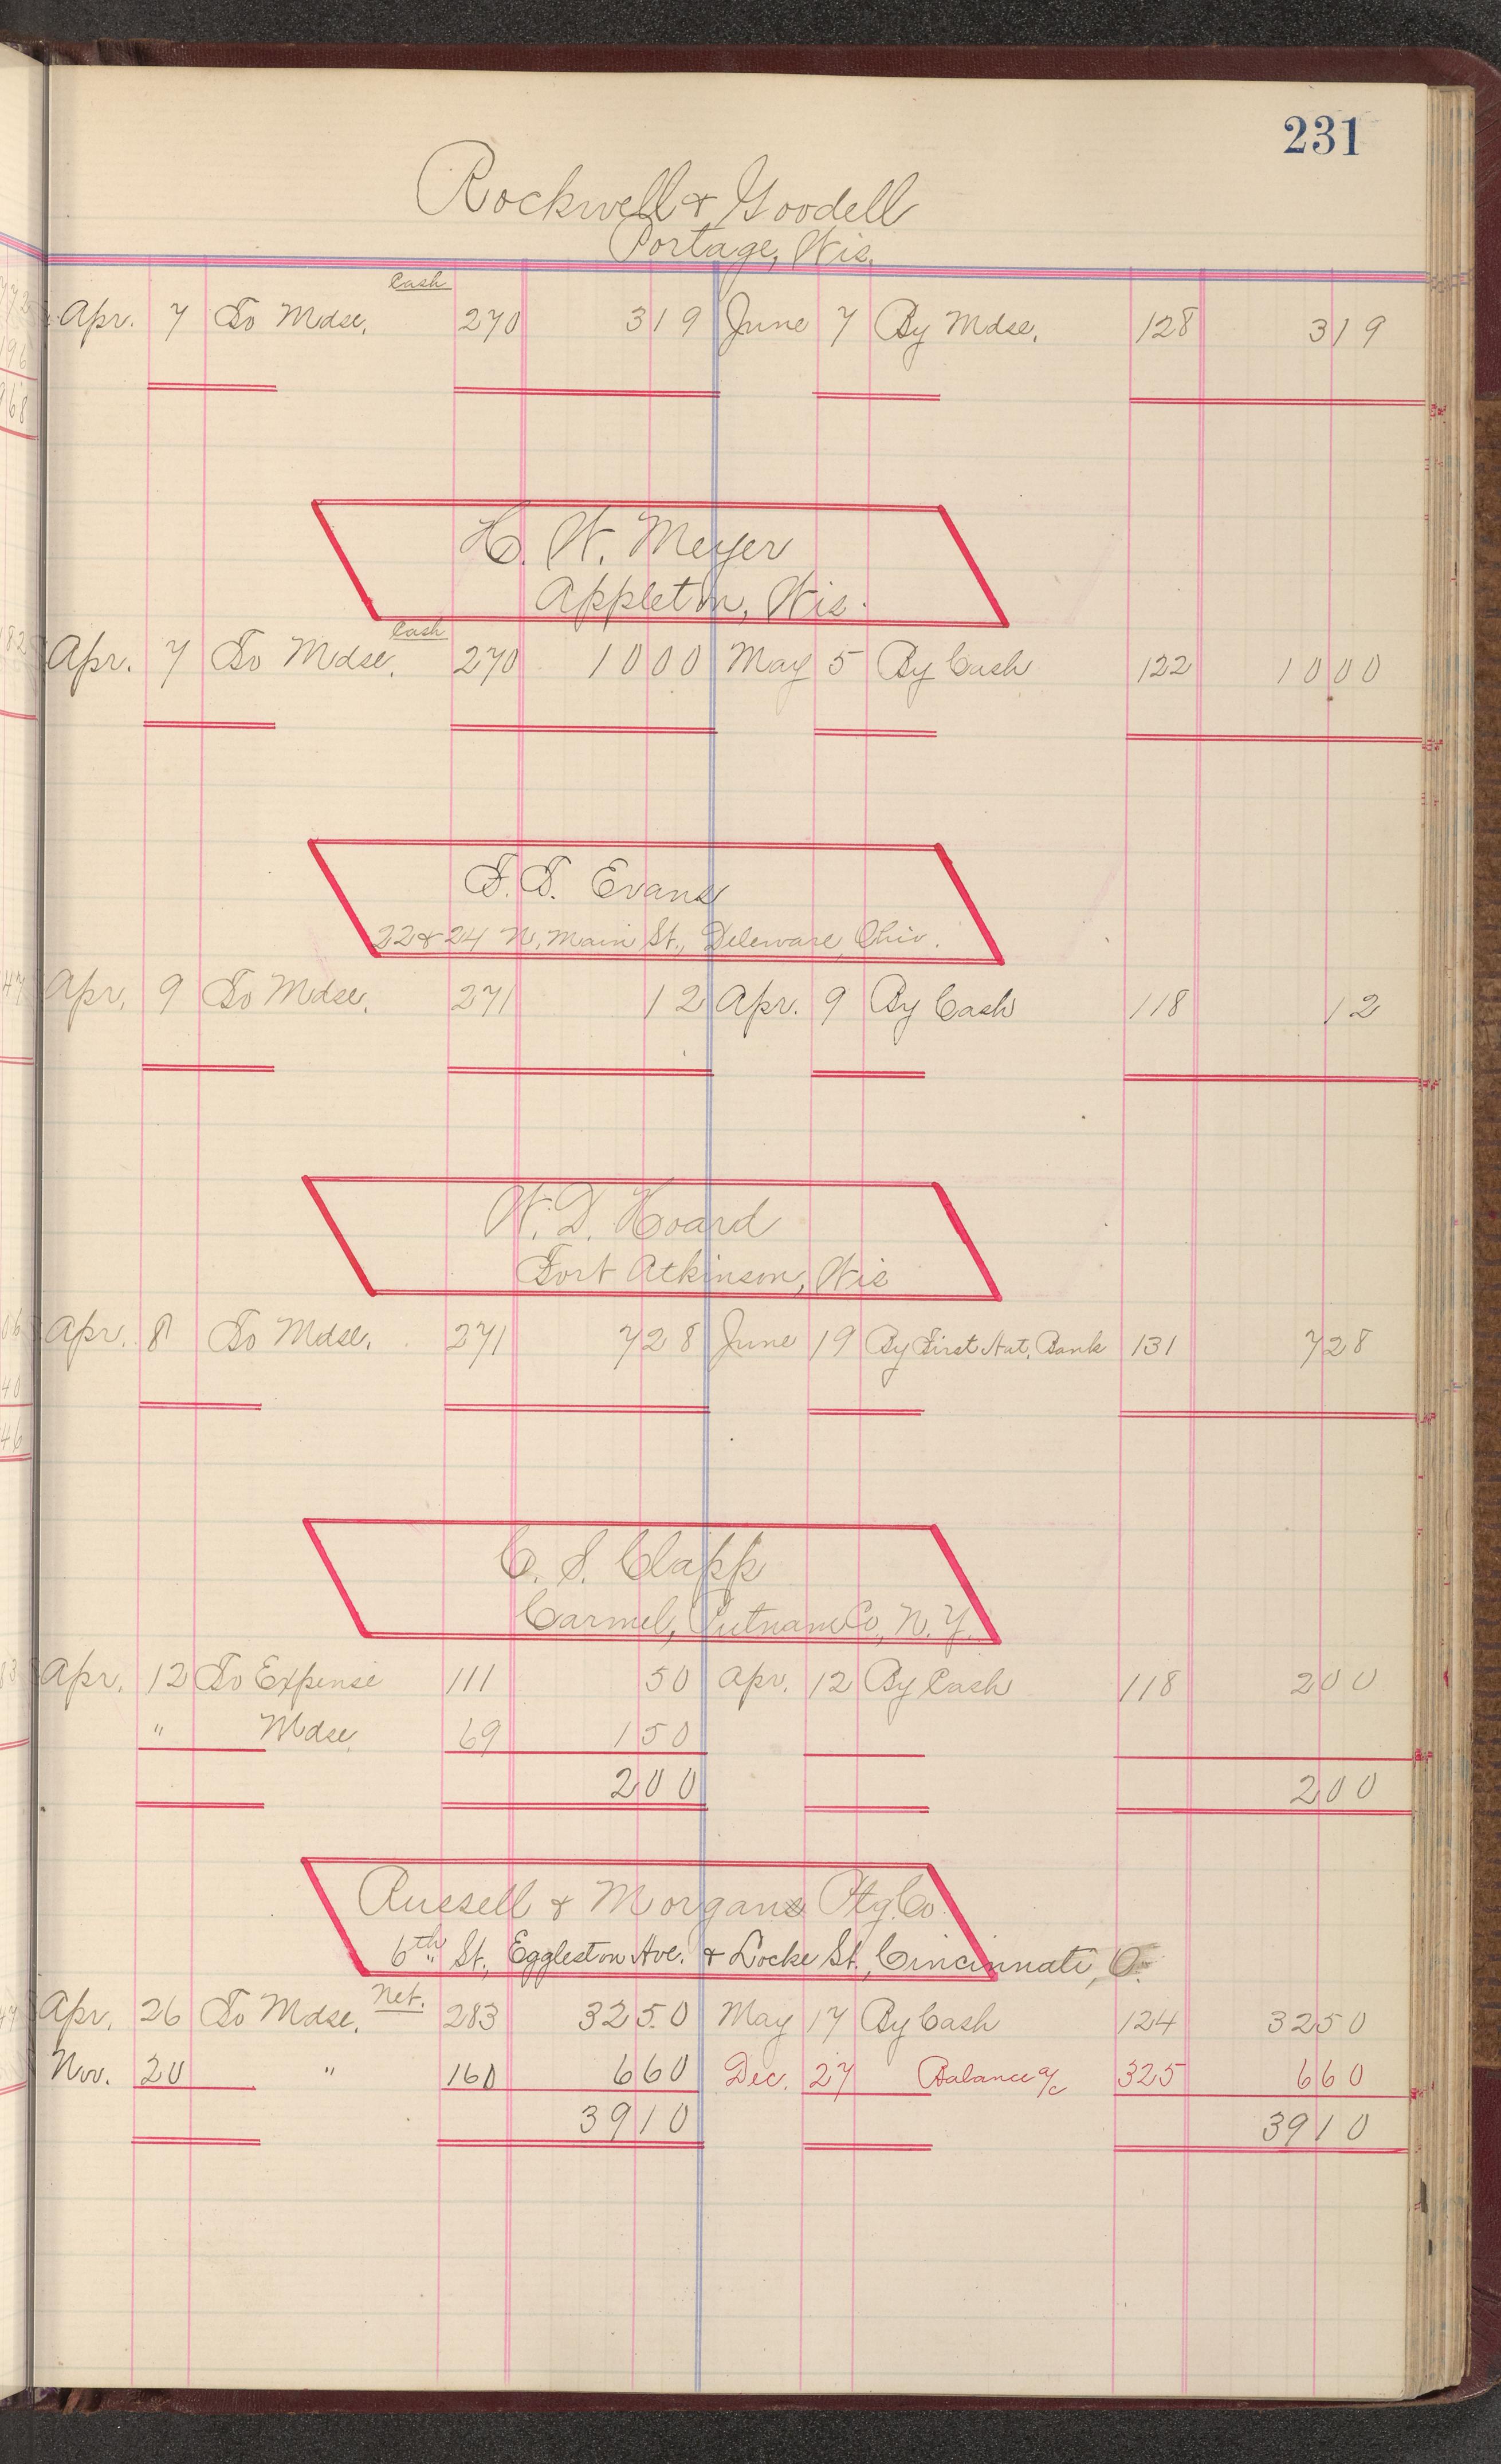 231
Rockwell & Goodell
Portage, Wis.
Cash
Apr. 7 To Mdse. 270 3 19 June 7 By Mdse. 128 3 19
H. W. Meyer
Appleton, Wis.
Cash
Apr. 7 To Mdse. 270 10 00 May 5 By Cash 122 10 00
F. T. Evans
22 & 24 N. Main St., Deleware, Ohio.
Apr. 9 To Mdse. 271 12 Apr. 9 By Cash 118 12
W. D. Hoard
Fort Atkinson, Wis
Apr. 8 To Mdse. 271 7 28 June 19 By First Nat. Bank 131 7 28
C. S. Clapp
Carmel, Putnam Co., N. Y.
Apr. 12 To Expense 111 50 Apr. 12 By Cash 118 2 00
" Mdse. 69 1 50
2 00 2 00
Russell & Morgans Ptg. Co.
6th St., Eggleston Ave. & Locke St., Cincinnati, O.
Net.
Apr. 26 To Mdse. 283 32 50 May 17 By Cash 124 32 50
Nov. 20 " 160 6 60 Dec. 27 Balance a/c 325 6 60
39 10 39 10